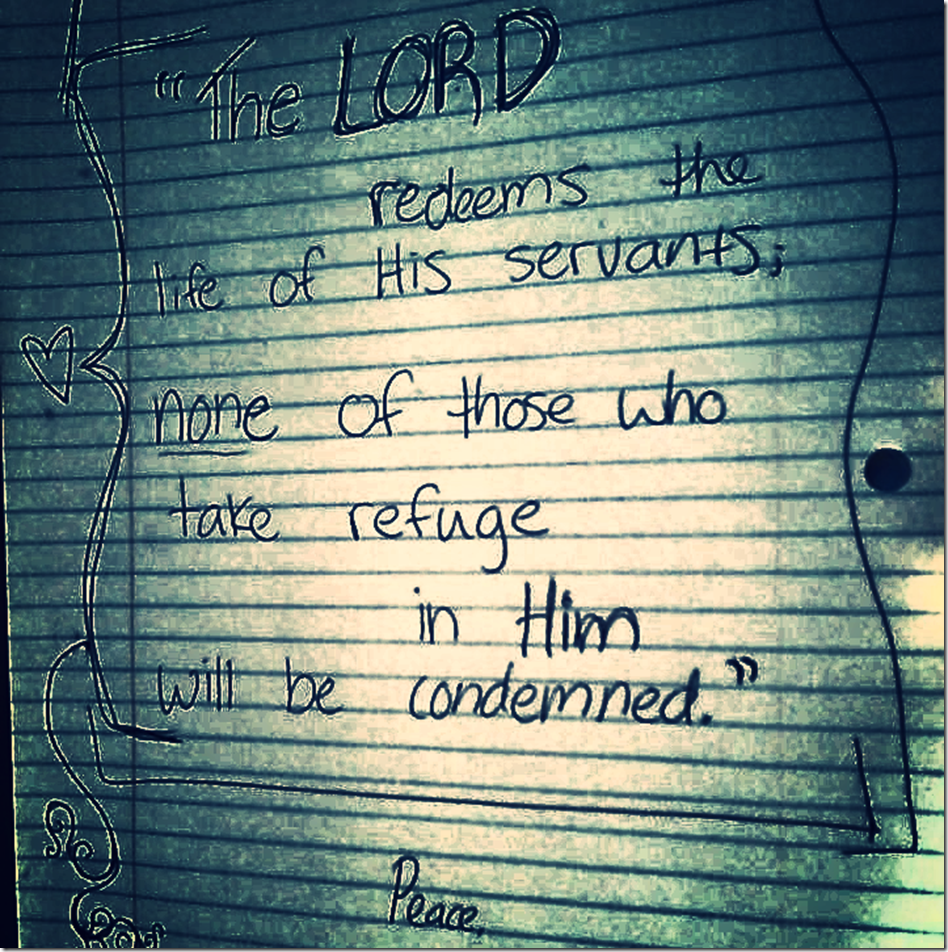 “The LORD
redeems the
life of His servants;
none of those who
take refuge
in Him
will be condemned.”
Peace,